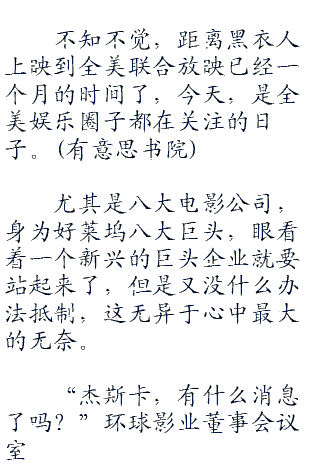 不知不觉，距离黑衣人
上映到全美联合放映已经一
个月的时间了，今天，是全
美娱乐圈子都在关注的日
子。(有意思书院)
尤其是八大电影公司，
身为好莱坞八大巨头，眼看
着一个新兴的巨头企业就要
站起来了，但是又没什么办
法抵制，这无异于心中最大
的无奈。
“杰斯卡，有什么消息
了吗？”环球影业董事会议
室